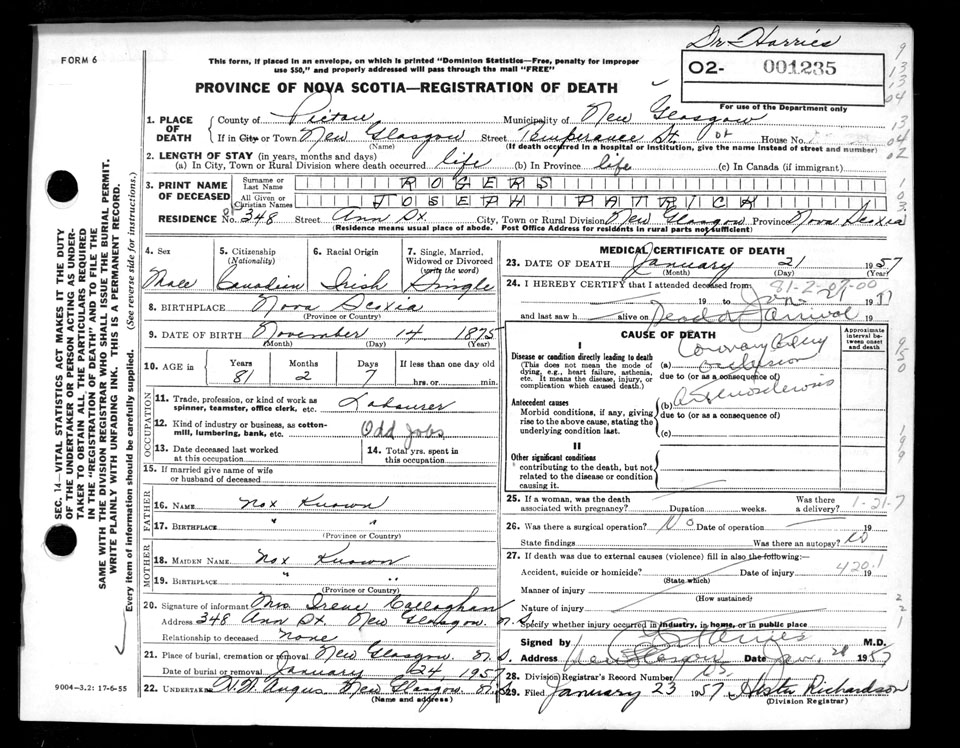 Dr. Harries
FORM 6
This form, if placed in an envelope, on which is printed "Dominion Statistics—Free, penalty for improper
use $50," and properly addressed will pass through the mail "FREE"
O2- 001235
PROVINCE OF NOVA SCOTIA—REGISTRATION OF DEATH
For use of the Department only
1. PLACE OF DEATH
County of Pictou Municipality of New Glasgow
If in City or Town New Glasgow Street Temperance St. House No.
(Name) (If death occurred in a hospital or institution, give the name instead of street and number)
2. LENGTH OF STAY (in years, months and days)
(a) In City, Town or Rural Division where death occurred life (b) In Province life (c) In Canada (if immigrant)
3. PRINT NAME OF DECEASED
Surname or Last Name ROGERS
All Given or Christian Names JOSEPH PATRICK
RESIDENCE No. 348 Street Ann St. City, Town or Rural Division New Glasgow Province Nova Scotia
(Residence means usual place of abode. Post Office Address for residents in rural parts not sufficient)
4. Sex
Male
5. Citizenship (Nationality)
Canadian
6. Racial Origin
Irish
7. Single, Married, Widowed or Divorced (write the word)
Single
8. BIRTHPLACE Nova Scotia
(Province or Country)
9. DATE OF BIRTH November 14 1875
(Month) (Day) (Year)
10. AGE in Years 81 Months 2 Days 7 If less than one day old
hrs. or min.
OCCUPATION
11. Trade, profession, or kind of work as spinner, teamster, office clerk, etc. Labourer
12. Kind of industry or business, as cotton-mill, lumbering, bank, etc. Odd Jobs
13. Date deceased last worked at this occupation
14. Total yrs. spent in this occupation
15. If married give name of wife or husband of deceased
FATHER
16. NAME Not Known
17. BIRTHPLACE " "
(Province or Country)
MOTHER
18. MAIDEN NAME Not Known
19. BIRTHPLACE " "
(Province or Country)
20. Signature of informant Mrs Irene Callaghan
Address 348 Ann St. New Glasgow. N.S.
Relationship to deceased none
21. Place of burial, cremation or removal New Glasgow. N.S.
Date of burial or removal January 24, 1957
22. UNDERTAKER New Glasgow N.S.
(Name and address)
MEDICAL CERTIFICATE OF DEATH
23. DATE OF DEATH January 21 1957
(Month) (Day) (Year)
24. I HEREBY CERTIFY that I attended deceased from 81-2-07-00
19 to Jan 19
and last saw h alive on Dead on arrival 19
CAUSE OF DEATH
Approximate interval between onset and death
I
Disease or condition directly leading to death
(This does not mean the mode of dying, e.g., heart failure, asthenia, etc. It means the disease, injury, or complication which caused death.)
(a) Coronary Artery occlusion
due to (or as a consequence of)
Antecedent causes
Morbid conditions, if any, giving rise to the above cause, stating the underlying condition last.
(b)
due to (or as a consequence of)
(c)
II
Other significant conditions
contributing to the death, but not related to the disease or condition causing it.
25. If a woman, was the death associated with pregnancy? Duration weeks. Was there a delivery? 1-21-7
26. Was there a surgical operation? No Date of operation 19
State findings Was there an autopsy? no
27. If death was due to external causes (violence) fill in also the following:—
420.1
Accident, suicide or homicide? Date of injury 19
(State which)
Manner of injury
(How sustained)
Nature of injury
Specify whether injury occurred in industry, in home, or in public place
Signed by M.D.
Address New Glasgow Date Jan. 1957
28. Division Registrar's Record Number
29. Filed January 23 1957 Richardson
(Division Registrar)
SEC. 14—VITAL STATISTICS ACT MAKES IT THE DUTY
OF THE UNDERTAKER OR PERSON ACTING AS UNDER-
TAKER TO OBTAIN ALL THE PARTICULARS REQUIRED
IN THE "REGISTRATION OF DEATH" AND TO FILE THE
SAME WITH THE DIVISION REGISTRAR WHO SHALL ISSUE THE BURIAL PERMIT.
WRITE PLAINLY WITH UNFADING INK. THIS IS A PERMANENT RECORD.
Every item of information should be carefully supplied. (See reverse side for instructions.)
9004-3.2: 17-6-55